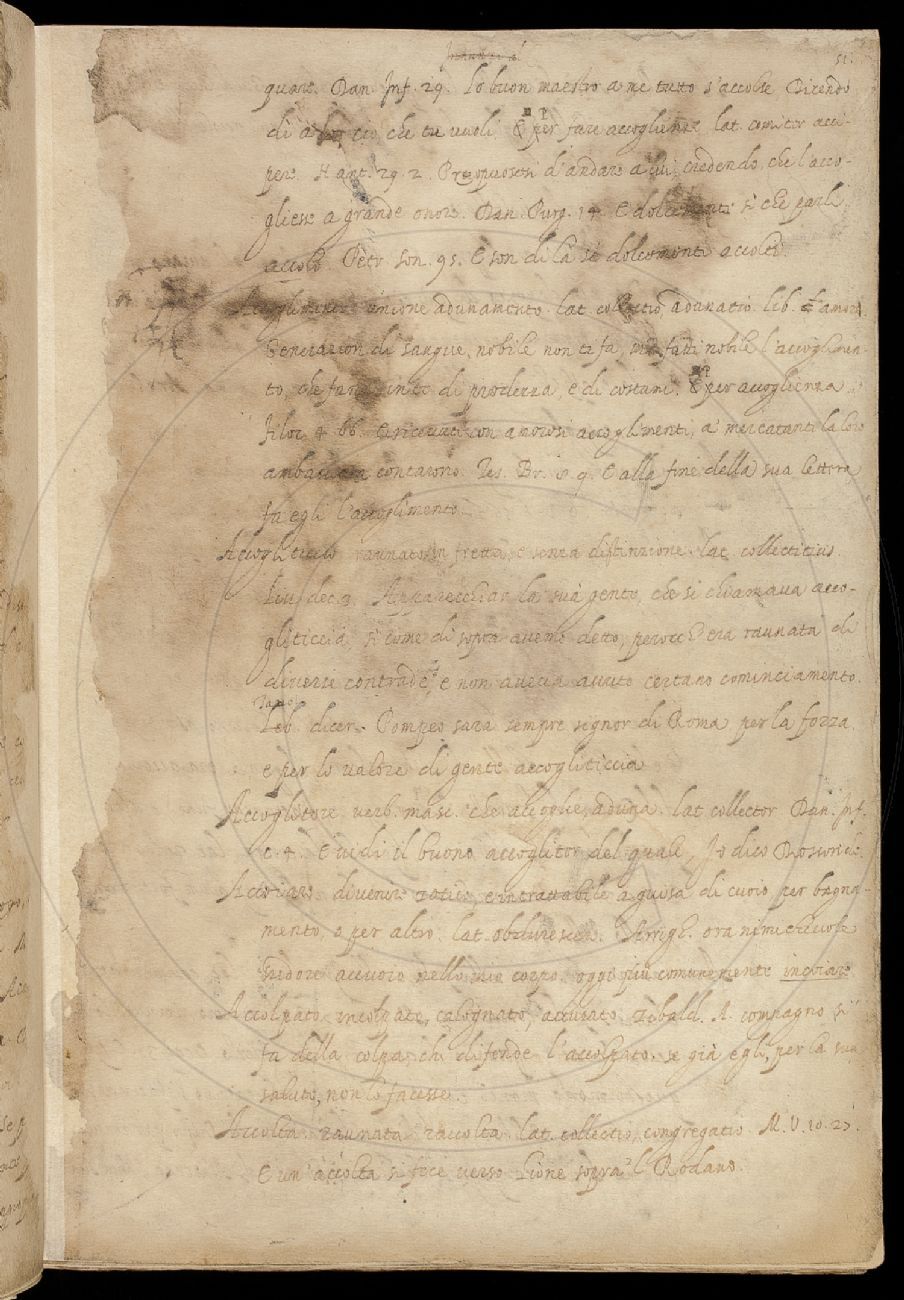 51.
guare. Dan. Inf. 29. Lo buon maestro a me tutto s'accolse Dicendo
di a lor ciò che tu vuoli. E per fare accoglienze lat. comiter acci-
pere. N. ant. 29. 2. Proposesi d'andare a lui, credendo, che l'acco-
gliese a grande onore. Dan. Purg. 14. E dolcemente sì che parli
accolo. Petr. son. 95. E son di là sì dolcemente accolto.
Accoglimento unione adunamento. lat. collectio, adunatio. lib. amor.
Generazion di sangue, nobile non ti fa, nobile l'accoglimen-
to, che di prodezza, e di costumi. E per accoglienza
Filoc. 4. 66. E ricevuti con amorosi accoglimenti, a' mercatanti la loro
ambasciata contarono. Tes. Br. 8. 9. E alla fine della sua lettera
fa egli l'accoglimento.
Accogliticcio raunato in fretta, e senza distinzione. lat. collecticius.
Liv. dec. 3. Apparecchiar la sua gente, che si chiamava acco-
gliticcia, sì come di sopra avemo detto, perocch'era raunata di
diverse contrade, e non aveva avuto certano cominciamento.
dicer. Pompeo sara sempre signor di Roma per la forza,
e per lo valore di gente accogliticcia
Accoglitore verb. masc. che accoglie, aduna. lat. collector Dan. Inf.
c. 4. E vidi il buono accoglitor del quale, Io dico
Accoiare divenire e intrattabile a guisa di cuoio per bagna-
mento, o per altro. lat. obdurescere. Arrigh. ora nimichevole
hridore accuoio nello mio corpo. oggi più comunemente incoiare
Accolpato incolpato, calognato, accusato Tebald. A. compagno si
fa della colpa, chi difende l'accolpato. se già egli, per la sua
salute, non lo facesse.
Accolta raunata raccolta. lat. collectio, congregatio. M. V. 10. 27.
E un' accolta si fece verso Lione sopra 'l Rodano.